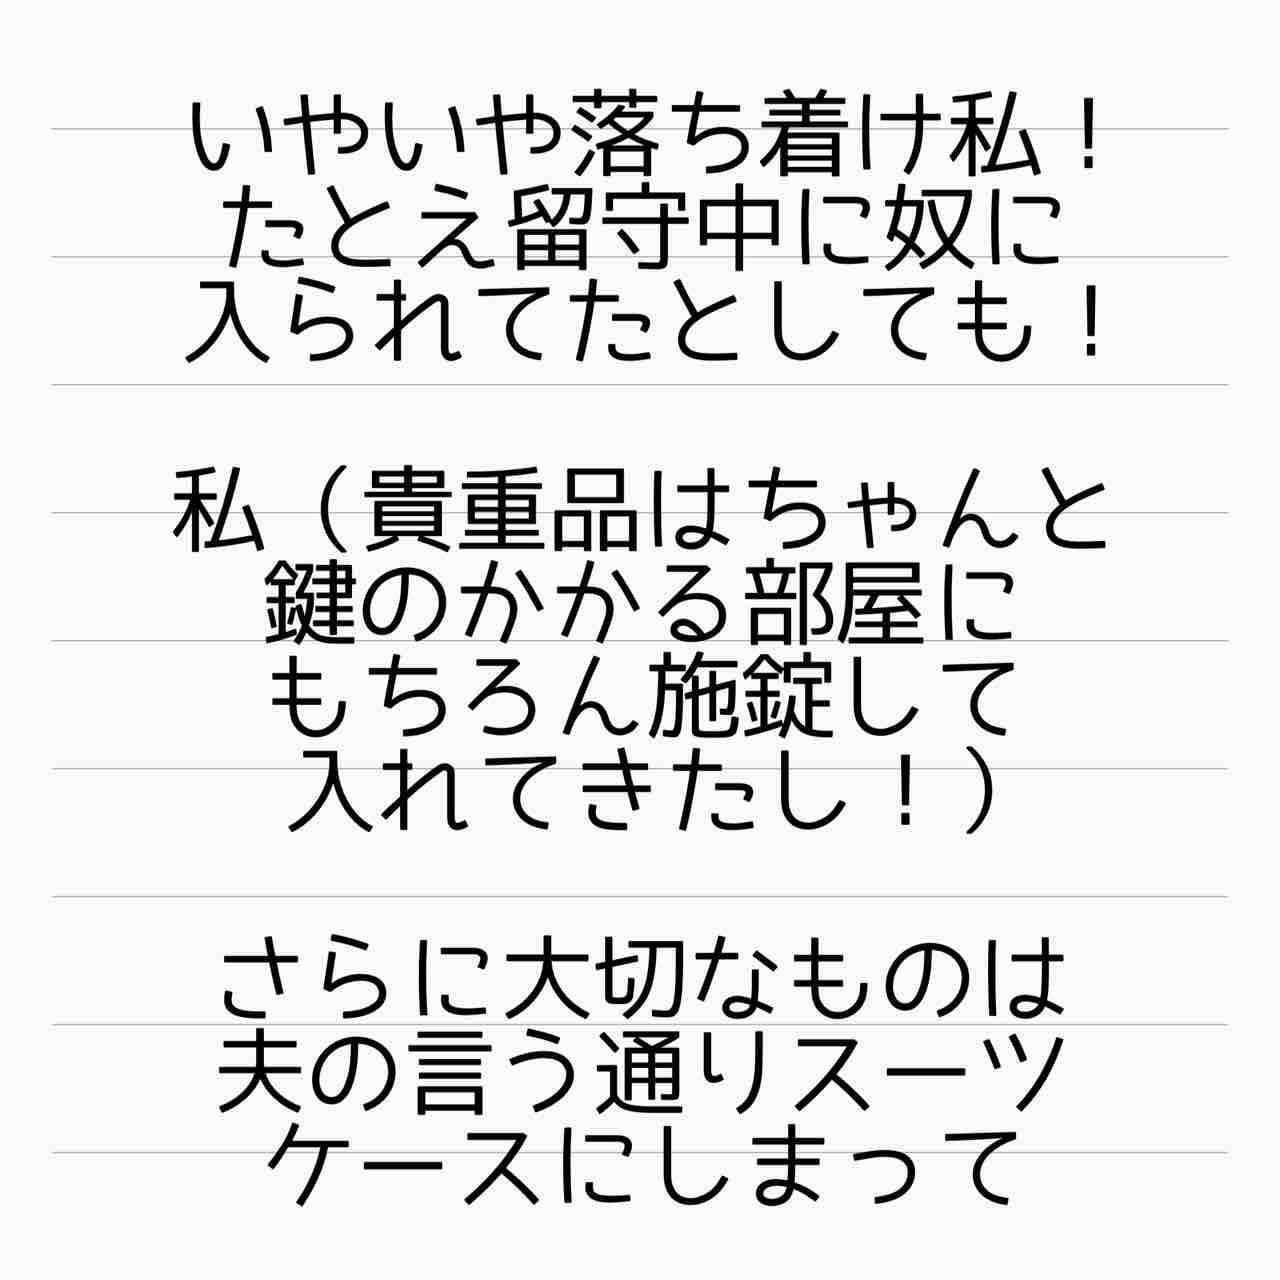 いやいや落ち着け私！
たとえ留守中に奴に
入られてたとしても！
私（貴重品はちゃんと
鍵のかかる部屋に
もちろん施錠して
入れてきたし！）
さらに大切なものは
夫の言う通りスーツ
ケースにしまって